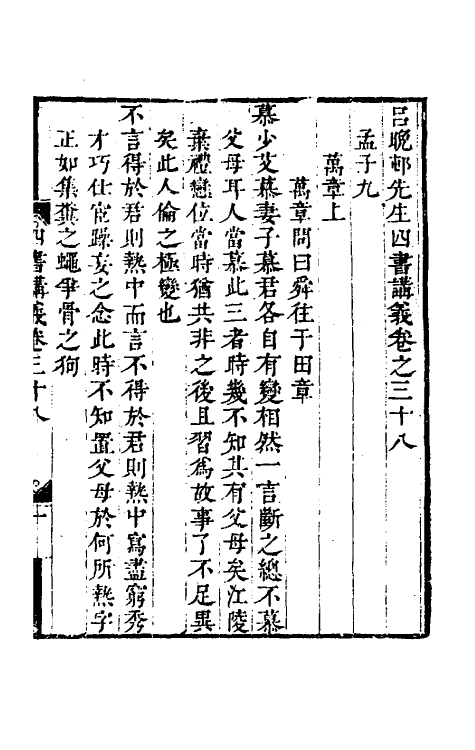 呂晚邨先生四書講義卷之三十八
孟子九
萬章上
萬章問曰舜往于田章
慕少艾慕妻子慕君各自有變相然一言斷之總不慕
父母耳人當慕此三者時幾不知其有父母矣江陵
棄禮戀位當時猶共非之後且習爲故事了不足異
矣此人倫之極變也
不言得於君則熱中而言不得於君則熱中寫盡窮秀
才巧仕宦躁妄之念此時不知置父母於何所熱字
正如集糞之蠅爭骨之狗
四書講義卷三十八
一